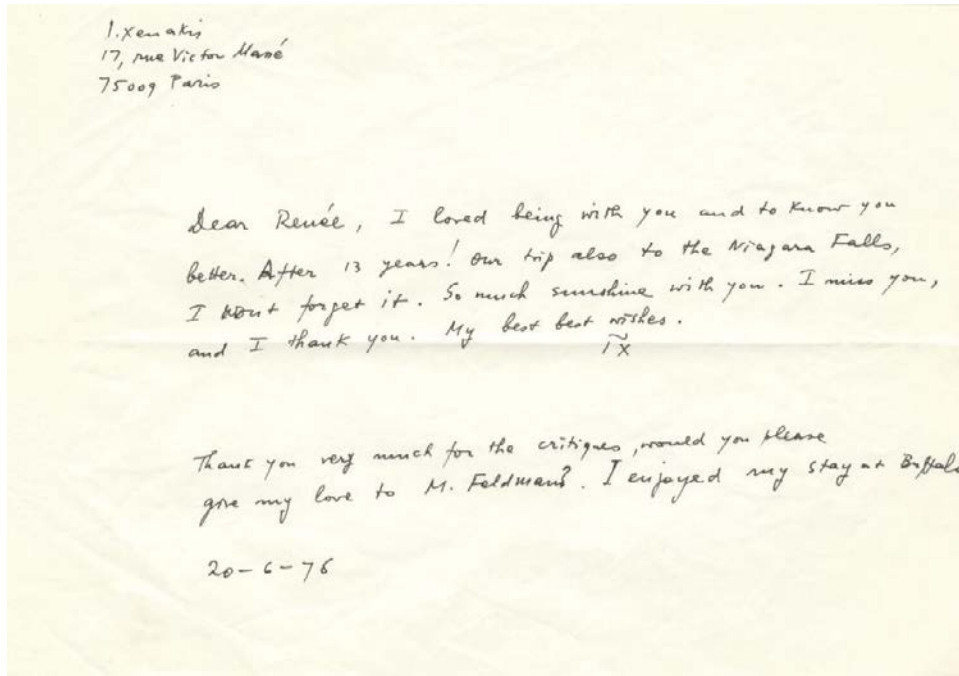 I. Xenakis
17, rue Victor Massé
75009 Paris
Dear Renée, I loved being with you and to know you
better. After 13 years! Our trip also to the Niagara Falls,
I wont forget it. So much sunshine with you. I miss you,
and I thank you. My best best wishes.
IX
Thank you very much for the critiques, would you please
give my love to M. Feldman?. I enjoyed my stay at Buffalo
20-6-76